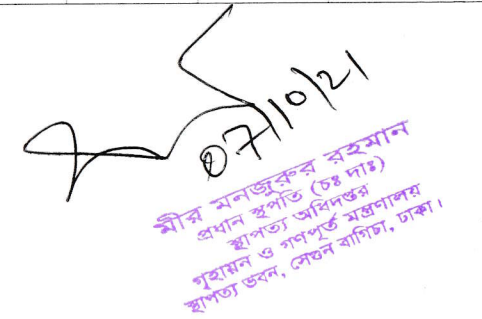 07/10/21
মীর মনজুরুর রহমান
প্রধান স্থপতি (চঃ দাঃ)
স্থাপত্য অধিদপ্তর
গৃহায়ন ও গণপূর্ত মন্ত্রণালয়
স্থাপত্য ভবন, সেগুন বাগিচা, ঢাকা।